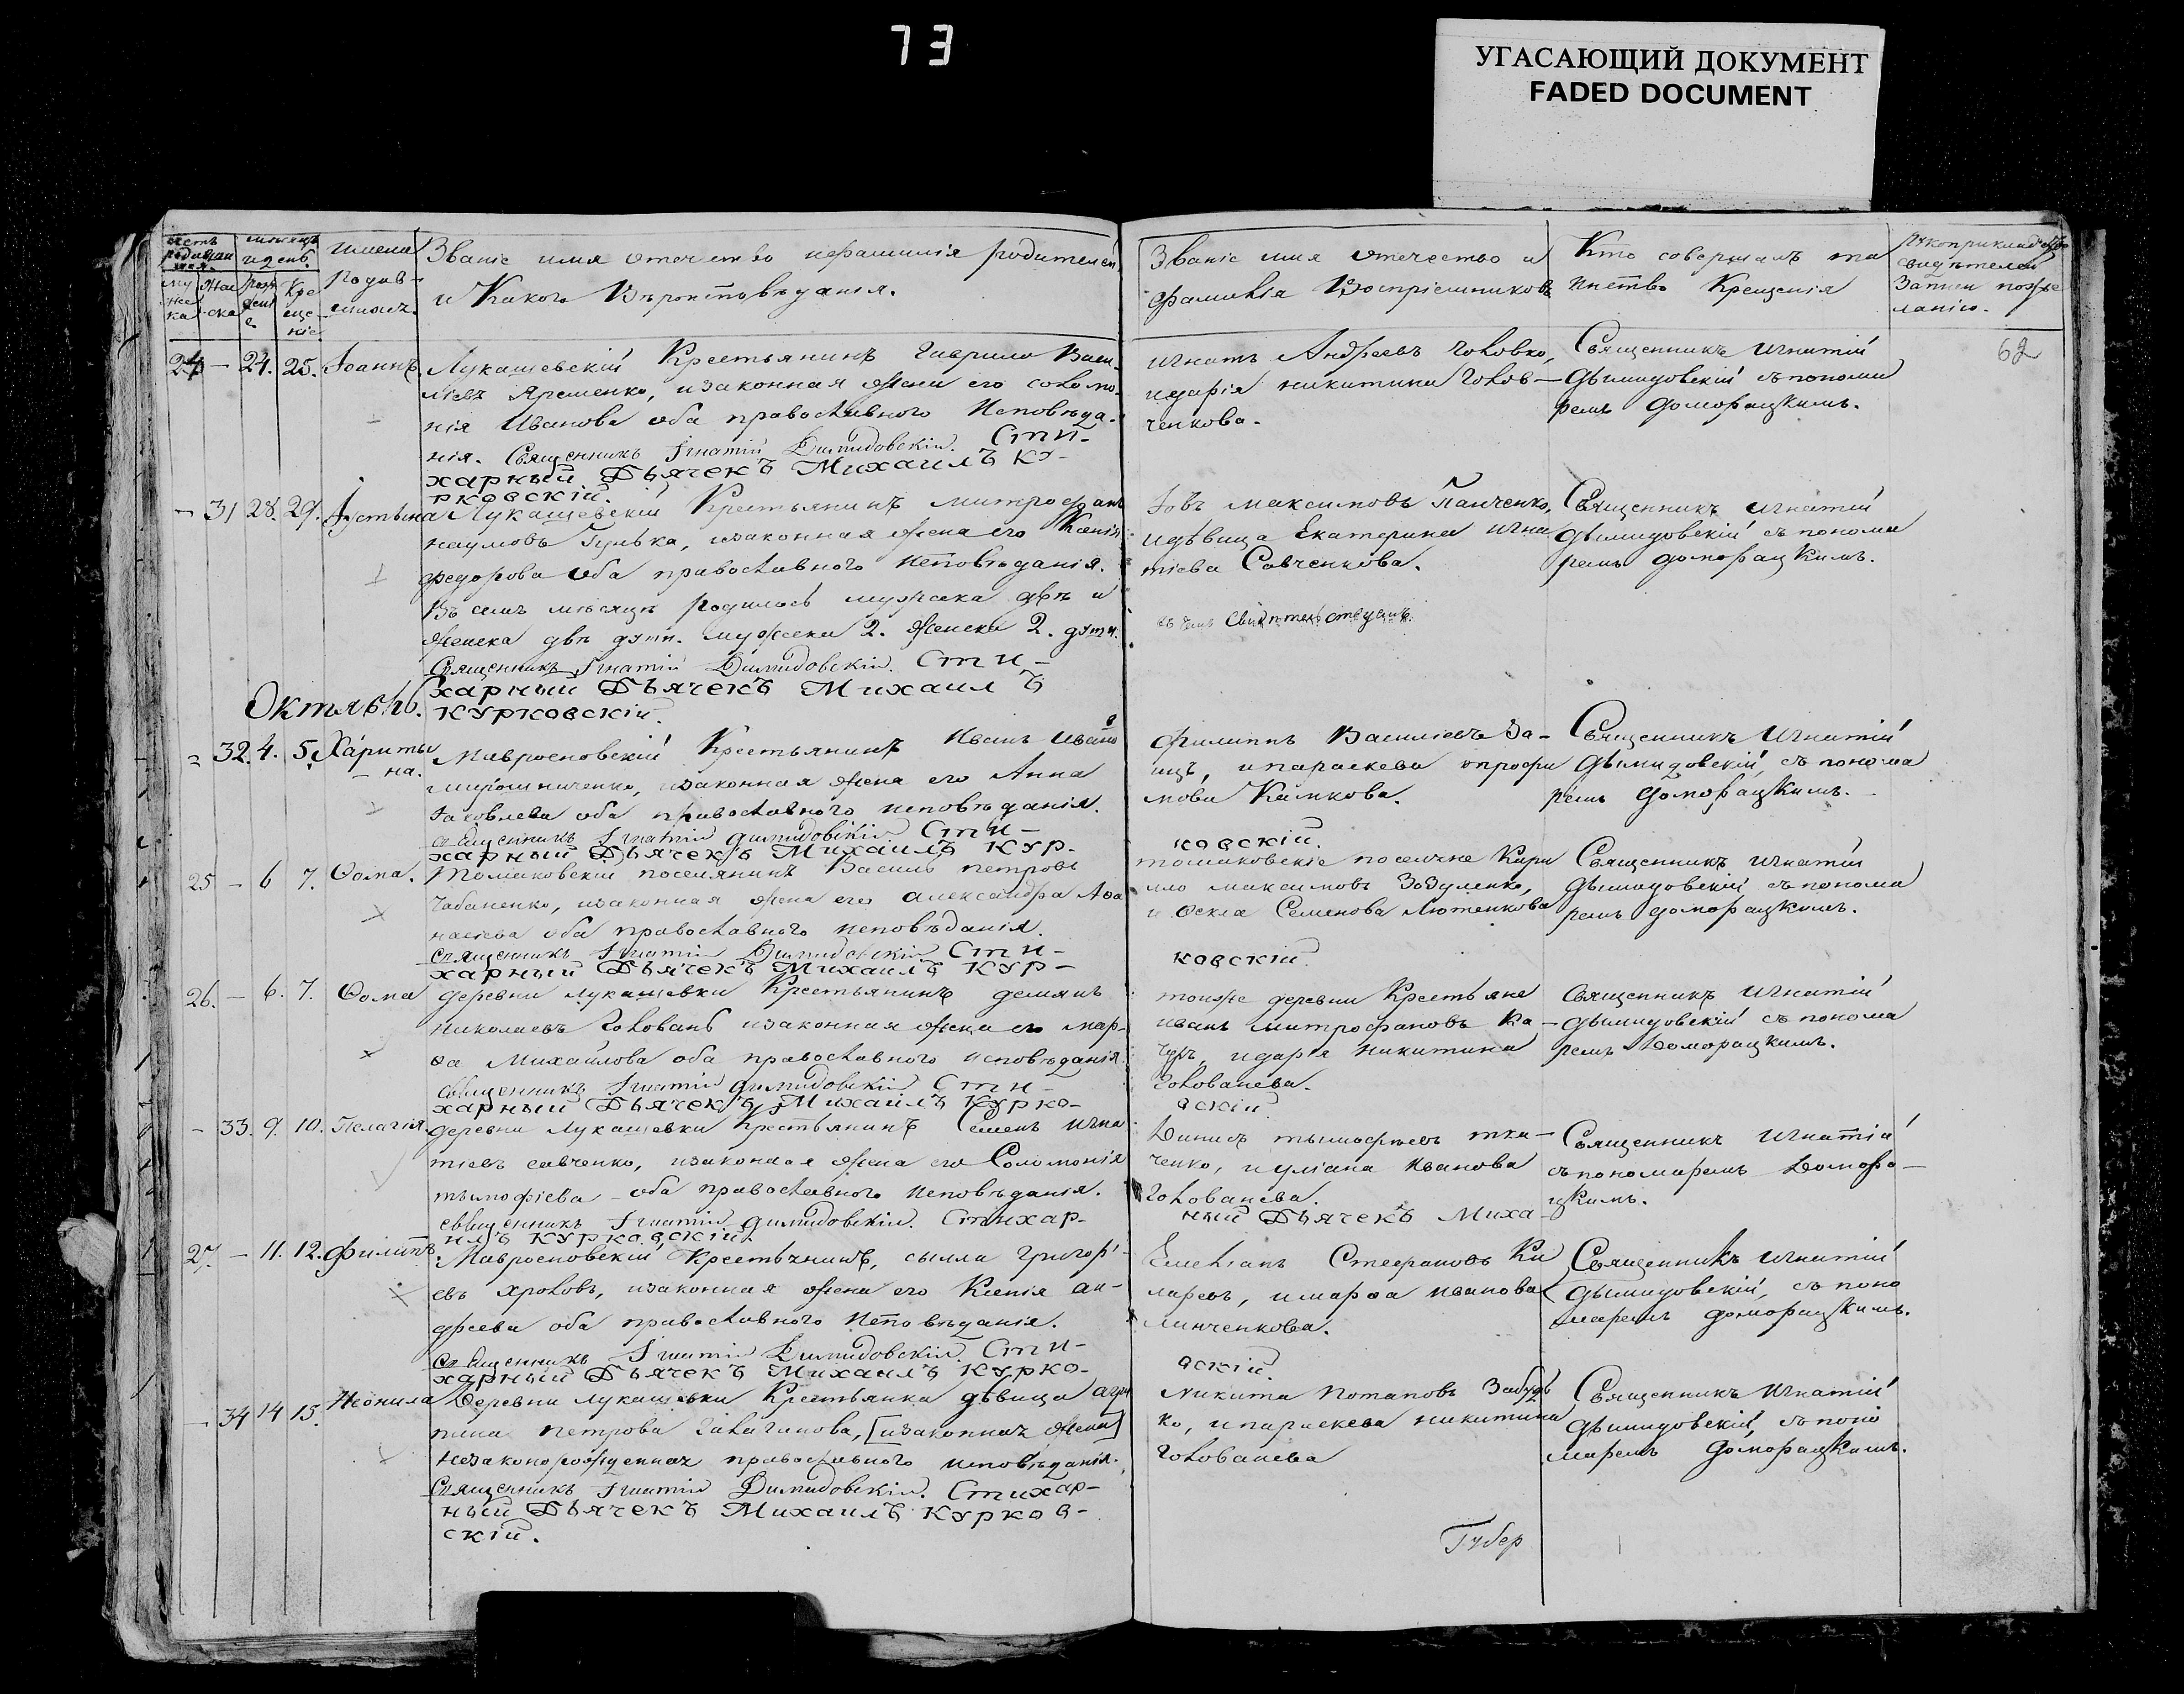 73
УГАСАЮЩИЙ ДОКУМЕНТ
FADED DOCUMENT
Имена
Родив-
шихъ.
Званіе имя отечество и фамилія родителей
и Какого Вѣроисповѣданія.
Званіе имя отечество и
фамилія Воспріемниковъ
Кто совершалъ та
инство Крещенія
Рукоприкладство
свидѣтелей
Записи по же
ланію.
62
24 — 24. 25. Іоаннъ
Лукашевскій Крестьянинъ Гаврило Васи-
ліевъ Яременко, изаконная жена его соломо-
нія Иванова оба православного Исповѣда-
нія. Священникъ Игнатій Димидовскій. Сти-
харный Дьячекъ Михаилъ Ку-
рковскій.
Игнатъ Андреевъ Головко,
идарія никитина Голов-
ченкова.
Священникъ Игнатій
Дымидовскій съ понома
ремъ Доморацкимъ.
— 31 28. 29. Іустина
Лукашевскій Крестьянинъ митрофанъ
наумовъ Гулька, изаконная жена его Ксенія
федорова оба православного Исповѣданія.
Въ семъ мѣсяцѣ родилось мужска двѣ и
женска двѣ души. мужска 2. женска 2. души.
Священникъ Игнатій Димидовскій. Сти-
харный Дьячекъ Михаилъ
Курковскій.
Іовъ максимовъ Панченко,
идѣвица Екатерина Игна
тіева Савченкова.
въ чемъ свидѣтельствуемъ.
Священникъ Игнатій
Дымидовскій съ понома
ремъ доморацкимъ.
Октябрь.
32. 4. 5. Харити
на.
Мавросновскій Крестьянинъ Иванъ Ивано
мирошниченко, изаконная жена его Анна
Іаковлева оба православного исповѣданія.
священникъ Игнатій Димидовскій Сти-
харный Дьячекъ Михаилъ Кур-
ковскій.
Филиппъ Василіевъ За-
ицъ, ипараскева
Камкова.
Священникъ Игнатій
Дымидовскій, съ понома
ремъ Доморацкимъ.
25 — 6 7. Ѳома.
Томаковскій поселянинъ Василь петровъ
Чабаненко, изаконная жена его александра Аѳа
насіева оба православного исповѣданія.
священникъ Игнатій Димидовскій Сти-
харный Дьячекъ Михаилъ Кур-
ковскій
томаковскіе поселяне Кири
ло максимовъ Зозуленко,
и Ѳекла Семенова Лютенкова
Священникъ Игнатій
Дымидовскій съ понома
ремъ доморацкимъ.
26. — 6. 7. Ѳома
деревни лукашевки Крестьянинъ демянъ
николаевъ Головань изаконная жена его мар-
ѳа Михайлова оба православного исповѣданія
священникъ Игнатій Димидовскій Сти-
харный Дьячекъ Михаилъ Курко-
вскій
тойже деревни Крестьяне
иванъ митрофановъ Ка-
чуръ, идарія никитина
Голованева.
Священникъ Игнатій
Дымидовскій съ понома
ремъ Доморацкимъ.
— 33. 9. 10. Пелагія.
деревни лукашевки Крестьянинъ Семенъ игна
тіевъ савченко, изаконная жена его Соломонія
тымофіева оба православного исповѣданія.
священникъ Игнатій Димидовскій. Стихар-
ный Дьячекъ Миха-
илъ Курковскій.
Динисъ тымофѣевъ тка-
ченко, и уліана Иванова
Голованева.
Священникъ Игнатій
съ пономаремъ Домора-
цкимъ.
27. — 11. 12. Филипъ
Мавросновскій Крестьянинъ, сыла Григорі-
евъ Хроловъ, изаконная жена его Ксенія ан-
дреева оба православного исповѣданія.
священникъ Игнатій Димидовскій Сти-
харный Дьячекъ Михаилъ Курко-
вскій.
Емеліанъ Стефановъ Ки
ларевъ, имарѳа иванова
линченкова.
Священникъ Игнатій
Дымидовскій, съ поно
маремъ доморацкимъ.
— 34 14 15. Неонила
Деревни лукашевки Крестьянка дѣвица агри
пина петрова Галаганова, [изаконная жена]
незаконорожденная православного исповѣданія.
Священникъ Игнатій Димидовскій. Стихар-
ный Дьячекъ Михаилъ Курков-
скій.
Никита Потаповъ Забудь
ко, ипараскева никитина
Голованева
Священникъ Игнатій
Дымидовскій, съ поно
маремъ Доморацкимъ.
Губер